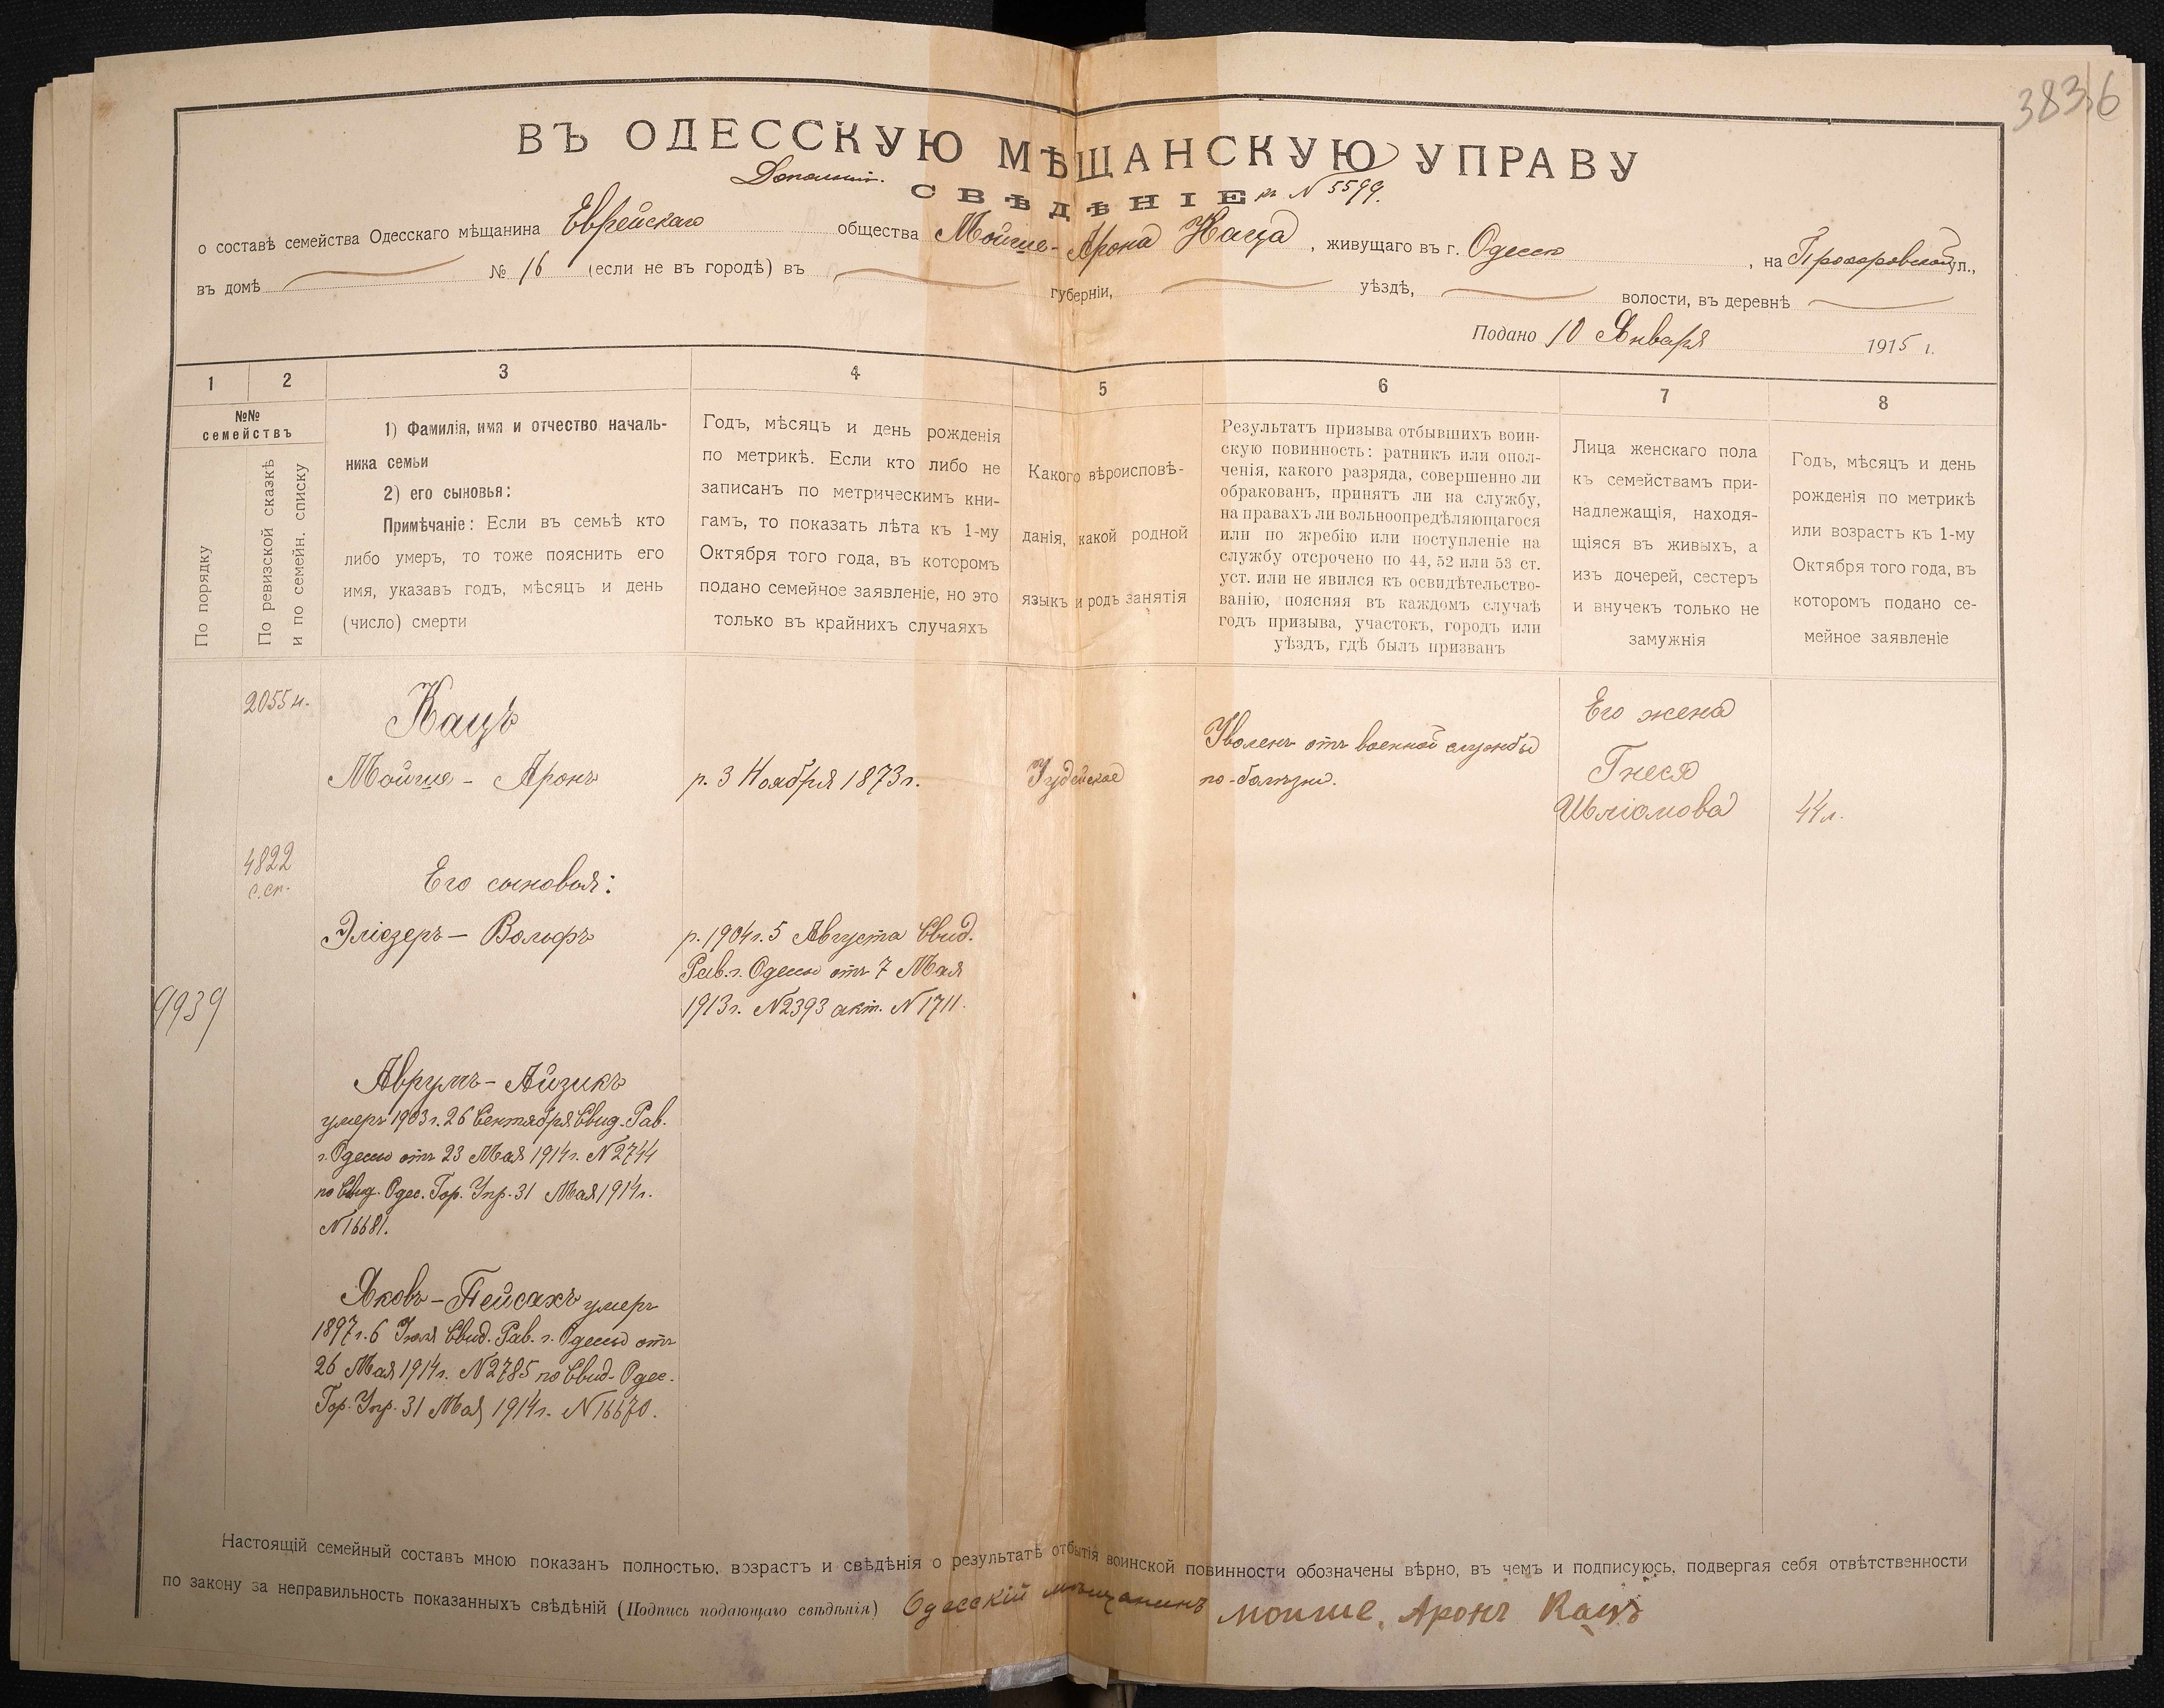 3836
ВЪ ОДЕССКУЮ МѢЩАНСКУЮ УПРАВУ
СВѢДѢНІЕ къ N 5599.
о составѣ семейства Одесскаго мѣщанина Еврейскаго общества Мойше-Арона Каца, живущаго въ г. Одессѣ, на Прохоровской ул.,
въ домѣ № 16 (если не въ городѣ) въ губерніи, уѣздѣ, волости, въ деревнѣ
Подано 10 Января 1915 г.
1 2 3 4 5 6 7 8
№№
семействъ
По порядку
По ревизской сказкѣ
и по семейн. списку
1) Фамилія, имя и отчество началь-
ника семьи
2) его сыновья:
Примѣчаніе: Если въ семьѣ кто
либо умеръ, то тоже пояснить его
имя, указавъ годъ, мѣсяцъ и день
(число) смерти
Годъ, мѣсяцъ и день рожденія
по метрикѣ. Если кто либо не
записанъ по метрическимъ кни-
гамъ, то показать лѣта къ 1-му
Октября того года, въ которомъ
подано семейное заявленіе, но это
только въ крайнихъ случаяхъ
Какого вѣроисповѣ-
данія, какой родной
языкъ и родъ занятія
Результатъ призыва отбывшихъ воин-
скую повинность: ратникъ или опол-
ченія, какого разряда, совершенно ли
обракованъ, принятъ ли на службу,
на правахъ ли вольноопредѣляющагося
или по жребію или поступленіе на
службу отсрочено по 44, 52 или 53 ст.
уст. или не явился къ освидѣтельство-
ванію, поясняя въ каждомъ случаѣ
годъ призыва, участокъ, городъ или
уѣздъ, гдѣ былъ призванъ
Лица женскаго пола
къ семействамъ при-
надлежащія, находя-
щіяся въ живыхъ, а
изъ дочерей, сестеръ
и внучекъ только не
замужнія
Годъ, мѣсяцъ и день
рожденія по метрикѣ
или возрастъ къ 1-му
Октября того года, въ
которомъ подано се-
мейное заявленіе
2055 н.
Кацъ
Мойше - Аронъ
р. 3 Ноября 1873 г.
Іудейское
Уволенъ отъ военной службы
по-болѣзни.
Его жена
Гнеся
Шліомова
44 л.
4822
с.сп.
Его сыновья:
Эліезеръ - Вольфъ
р. 1904 г. 5 Августа Свид.
Рав. г. Одессы отъ 7 Мая
1913 г. N 2393 акт. N 1711.
9939
Аврумъ - Айзикъ
умеръ 1903 г. 26 Сентября Свид. Рав.
г. Одессы отъ 23 Мая 1914 г. N 2744
по Свид. Одес. Гор. Упр. 31 Мая 1914 г.
N 16681.
Яковъ - Пейсахъ умеръ
1897 г. 6 Іюля Свид. Рав. г. Одессы отъ
26 Мая 1914 г. N 2785 по Свид. Одес.
Гор. Упр. 31 Мая 1914 г. N 16670.
Настоящій семейный составъ мною показанъ полностью, возрастъ и свѣдѣнія о результатѣ отбытія воинской повинности обозначены вѣрно, въ чемъ и подписуюсь, подвергая себя отвѣтственности
по закону за неправильность показанныхъ свѣдѣній (Подпись подающаго свѣдѣнія) Одесскій мѣщанинъ Моише, Аронъ Кацъ